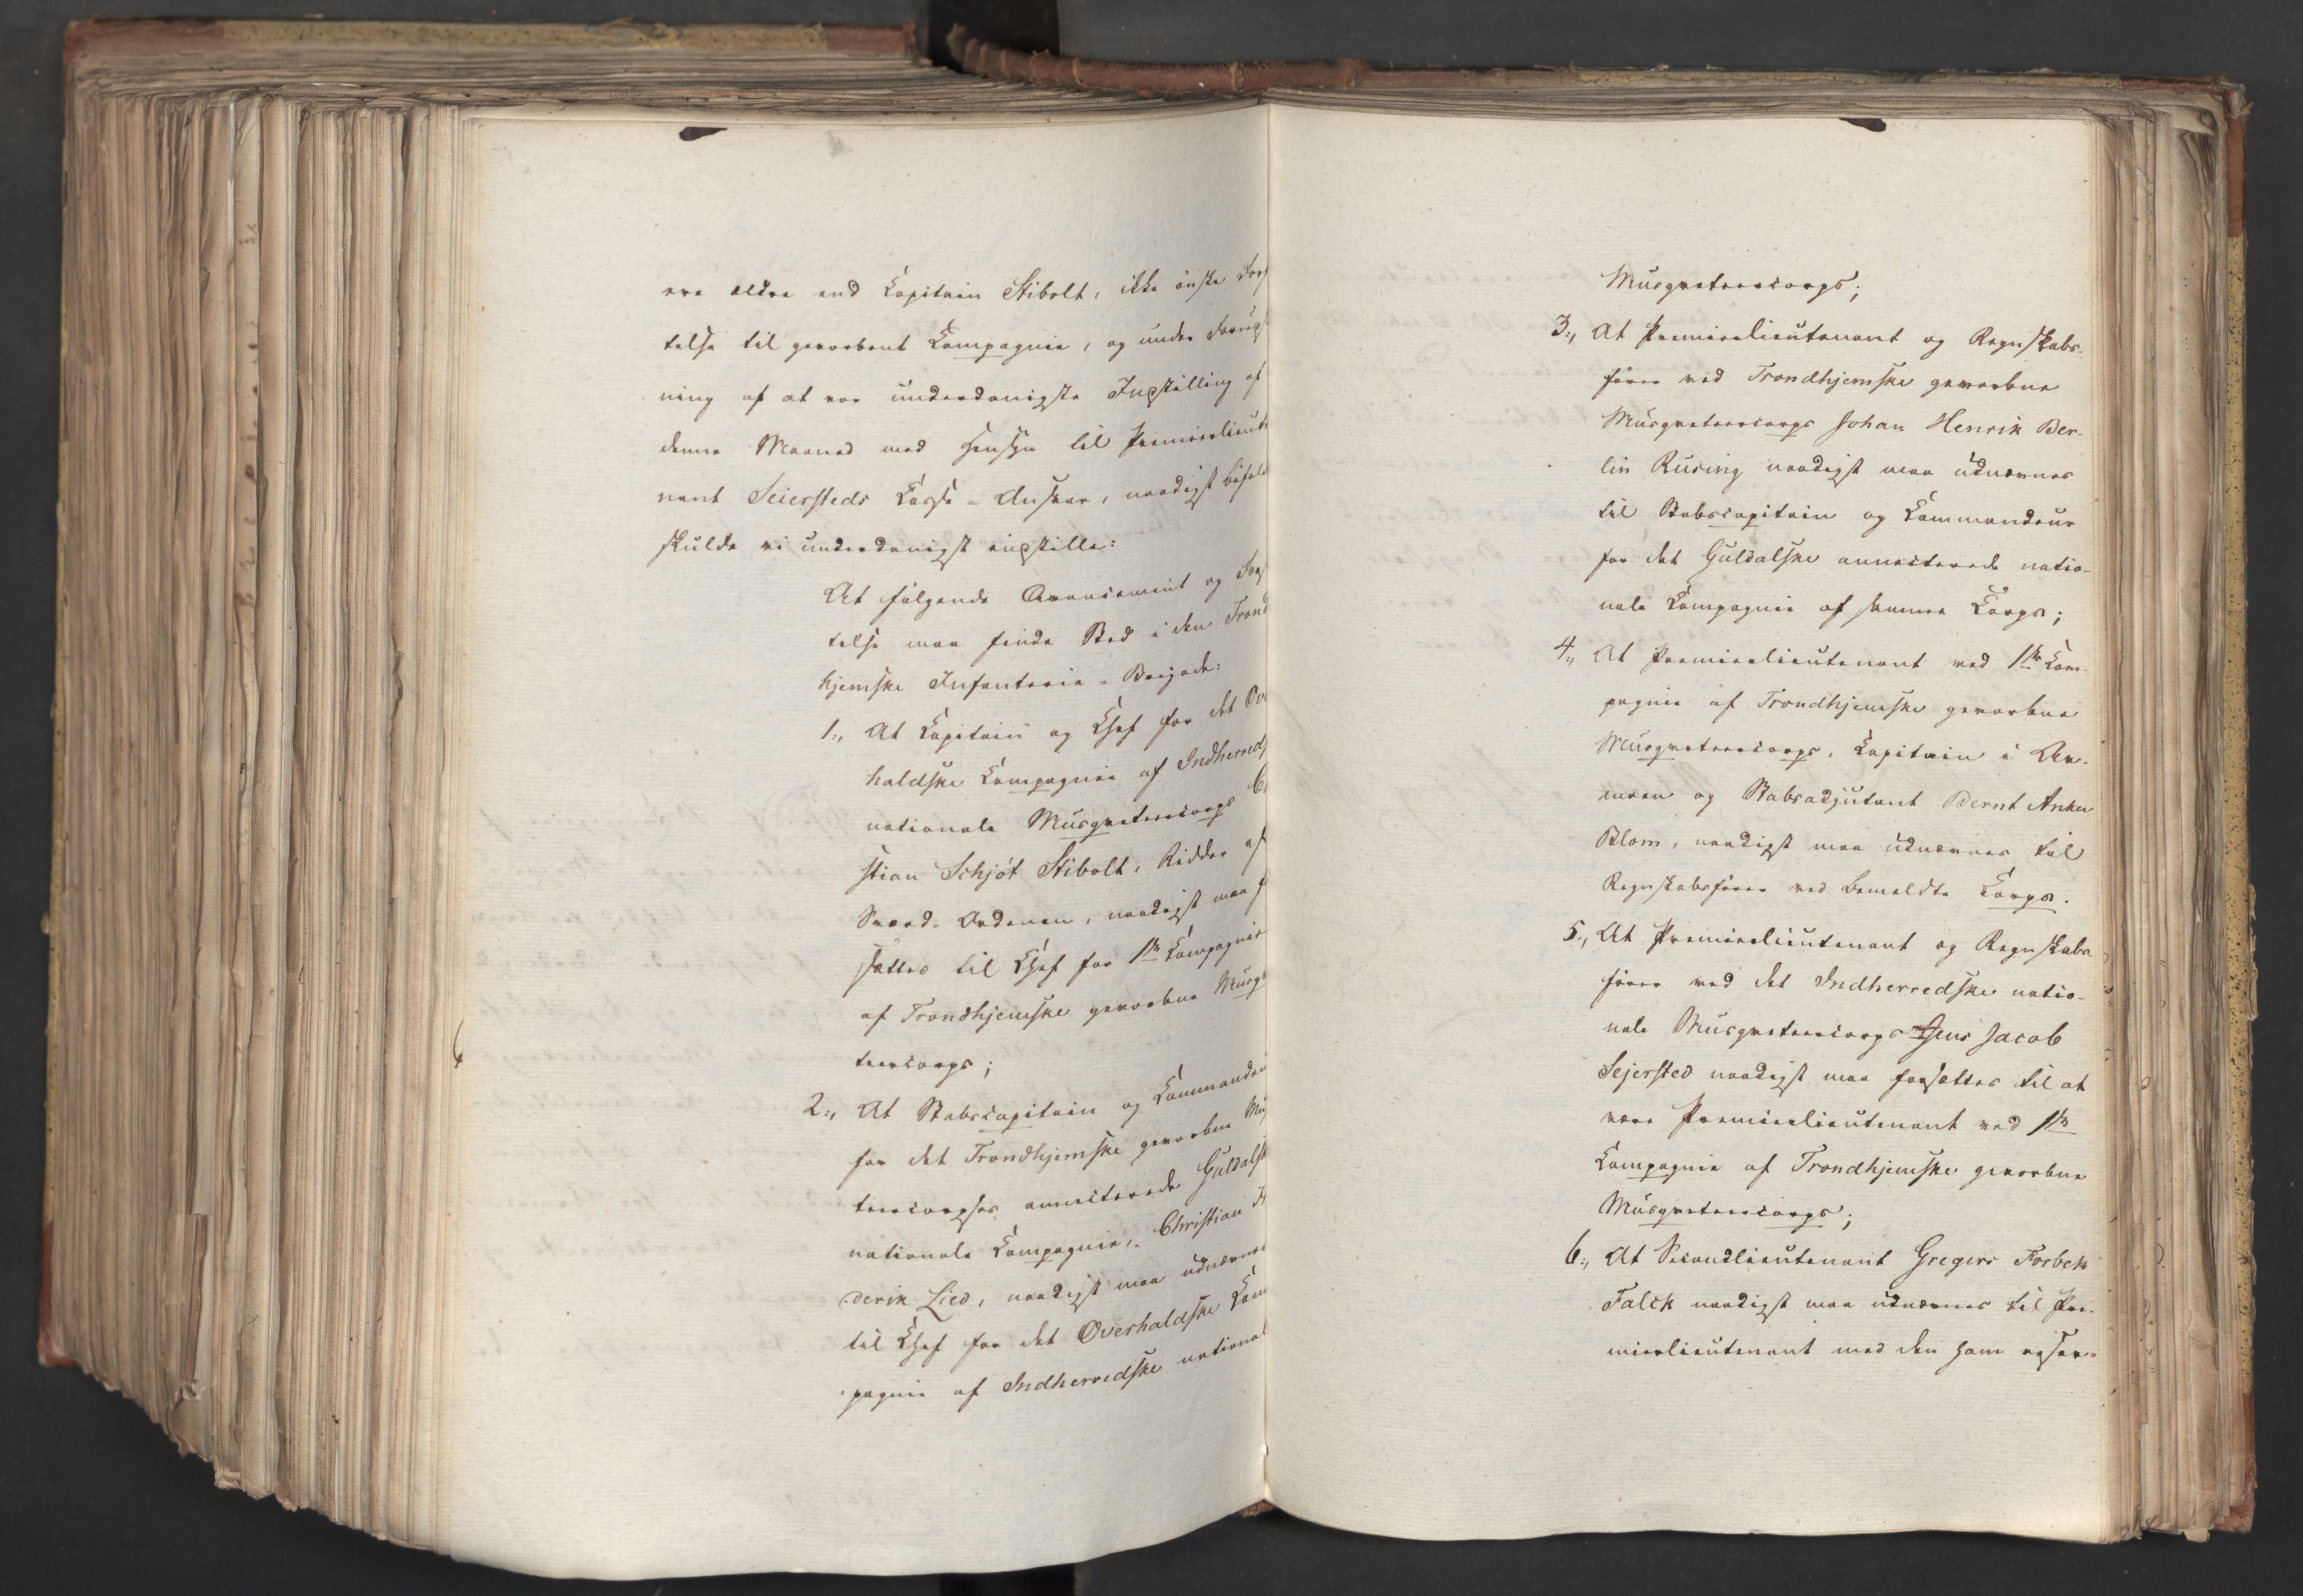 ere ældre end Capitain Stibolt, ikke önske For
telse til gevorbent Compagnie, og under Forud
ning af at vor underdanigste Indstilling af
denne Maaned med Hensyn til Premierlieute
nant Seiersteds Casse-Ansvar, naadigst bifald
skulde vi underdanigst indstille:
At følgende Avancement og For
telse maa finde Sted i den Trond
hjemske Infanterie-Brigade:
1., At Capitain og Chef for det Ove
haldske Compagnie af Indherreds
nationale Musqueteercorps C
stian Schjøt Stibolt, Ridder af
Sværd-Ordenen, naadigst maa f
sættes til Chef for 1ste Compagnie
af Trondhjemske gevorbne Musqu
teercorps;
2., At Stabscapitain og Commandeu
for det Trondhjemske gevorbne Mus
teercorpses annecterede Guldalsk
nationale Compagnie, Christian Fr
derik Lied, naadigst maa udnævnes
til Chef for det Overhaldske Com
pagnie af Indherredske national
Musqueteercorps;
3., At Premierlieutenant og Regnskabs-
fører ved Trondhjemske gevorbne
Musqueteercorps Johan Henrik Ber-
lin Rusing naadigst maa udnævnes
til Stabscapitain og Commandeur
for det Guldalske annecterede natio-
nale Compagnie af samme Corps;
4., At Premierlieutenant ved 1ste Com-
pagnie af Trondhjemske gevorbne
Musqueteercorps, Capitain i Ar-
meen og Stabsadjutant Bernt Anker
Blom, naadigst maa udnævnes til
Regnskabsfører ved bemeldte Corps.
5., At Premierlieutenant og Regnskabs-
fører ved det Indherredske natio-
nale Musqueteercorps Jens Jacob
Sejersted naadigst maa forsættes til at
være Premierlieutenant ved 1ste
Compagnie af Trondhjemske gevorbne
Musqueteercorps;
6., At Secondlieutenant Gregers Forbek
Falck naadigst maa udnævnes til Pre-
mierlieutenant med den ham